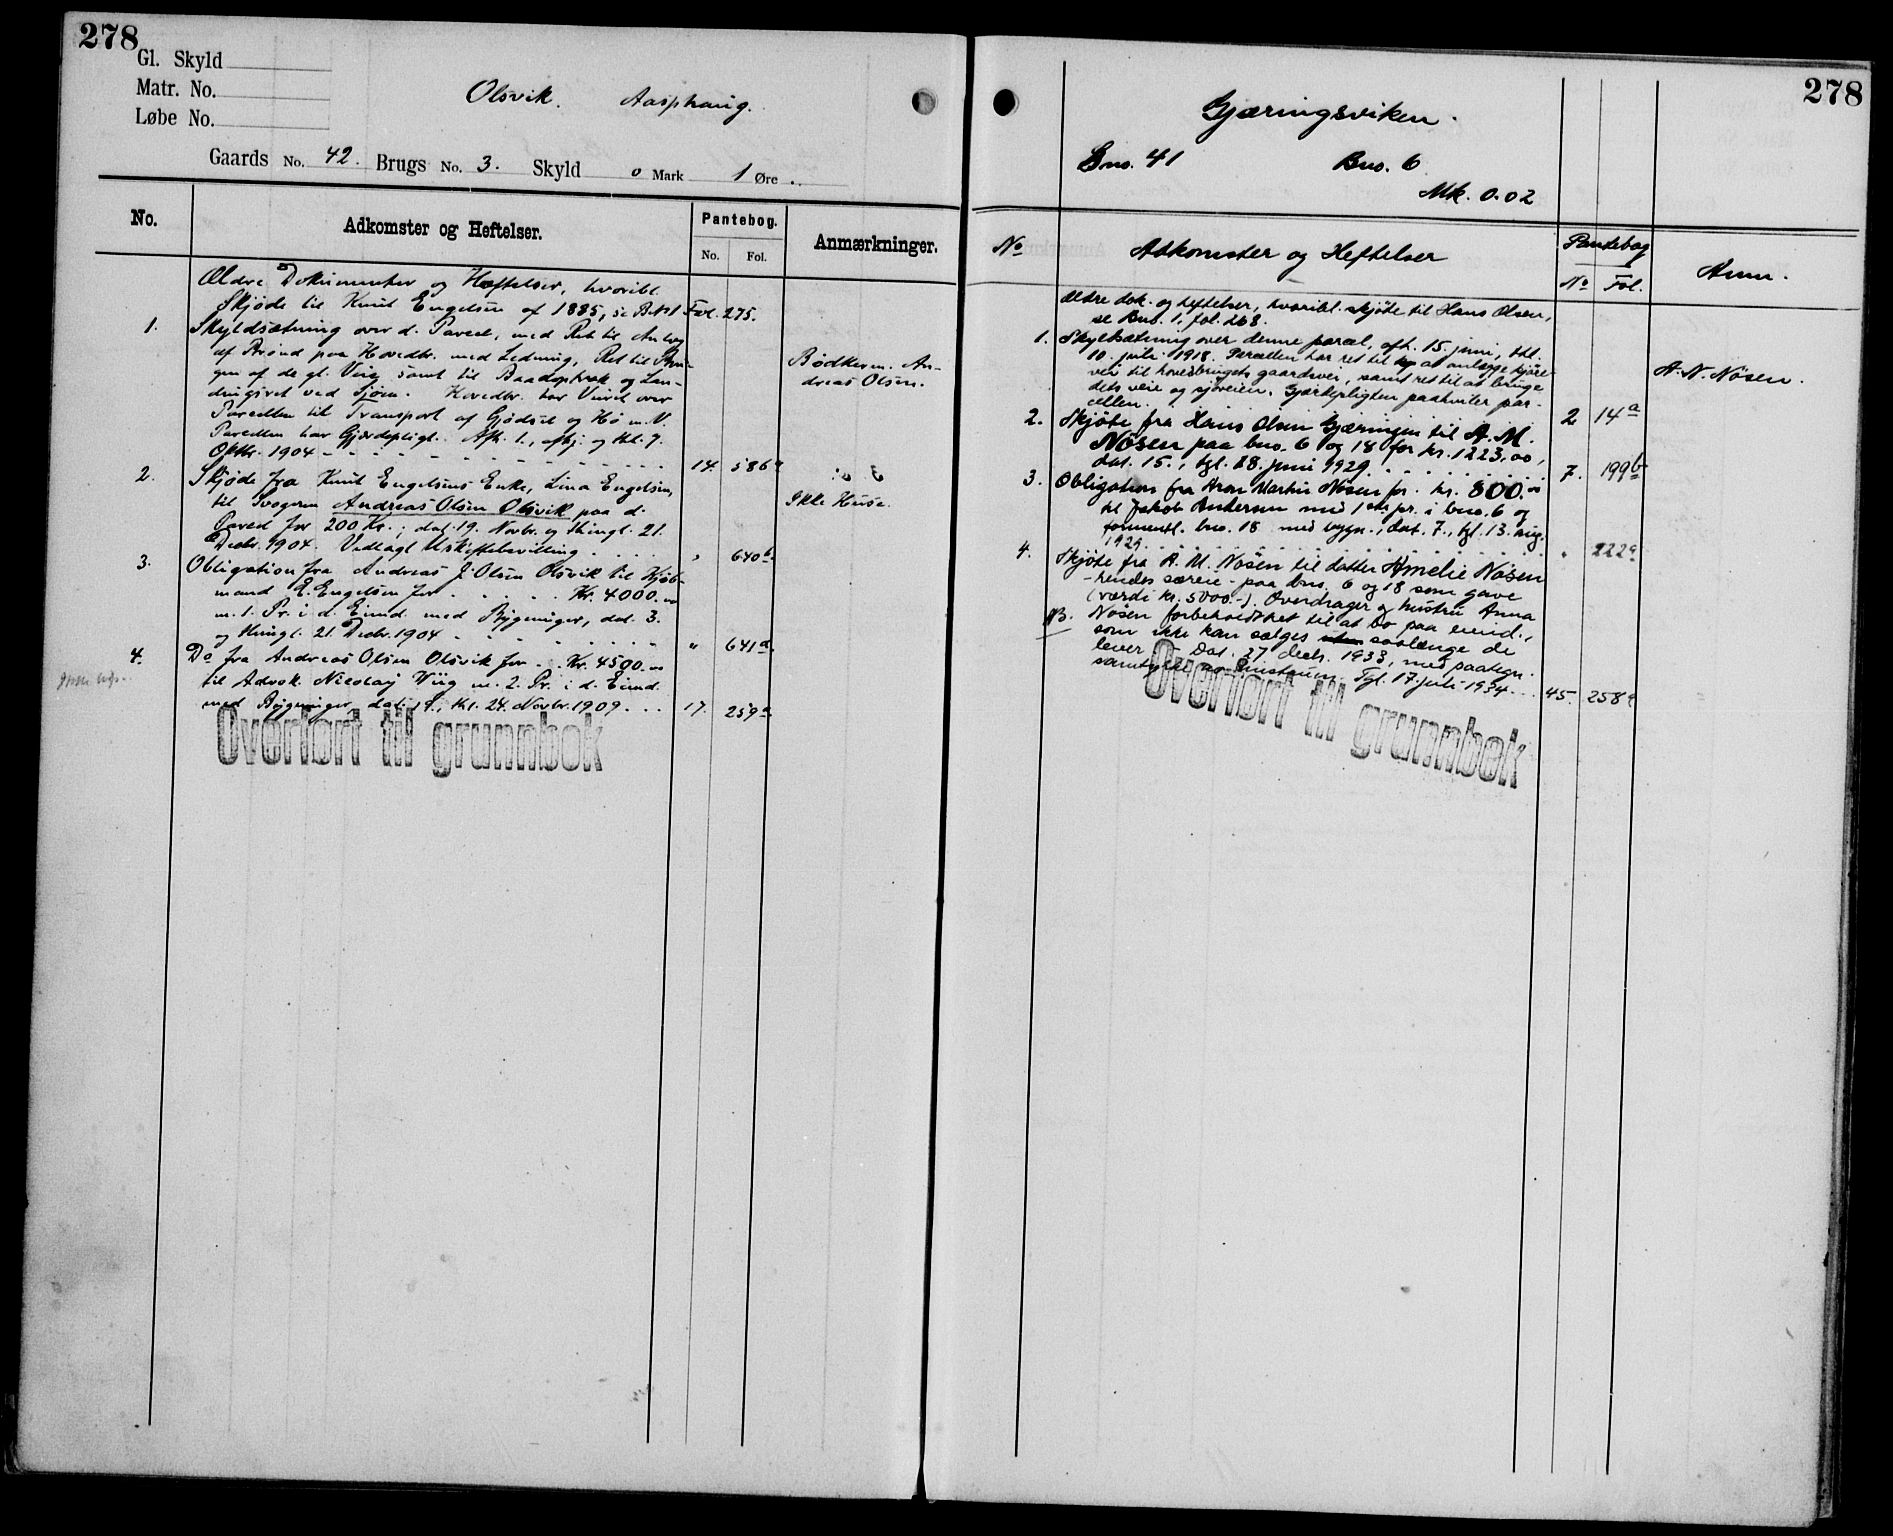 278
Gl. Skyld
Matr. No.
Løbe No.
Olsvik. Aasphaug.
Gaards No. 42. Brugs No. 3. Skyld 0 Mark 1 Øre
No. Adkomster og Heftelser. Pantebog. Anmærkninger.
No. Fol.
Ældre Dokumenter og Hæftelser, hvoribl.
Skjøde til Knut Engelsen af 1885, se B.No 1 Fol. 275.
1. Skyldsætning over d. Parcel, med Ret til Anlæg
af Brønd paa Hovedbr. med Ledning, Ret til Bru-
gen af de gl. Veie samt til Baadoptræk og Lan-
dingsret ved Sjøen. Hovedbr. har Veiret over
Parcellen til Transport af Gjødsel og Hø m. V.
Parcellen har Gjerdepligt. Afh. 1., afhj. og thl. 7.
Oktbr. 1904 14. 586a
Bødkerm. An-
dreas Olsen.
2. Skjøde fra Knut Engelsens Enke, Lina Engelsen,
til Svogeren Andreas Olsen Olsvik paa d.
Parcel for 200 Kr.; dat. 19. Novbr. og thingl. 21.
Decbr. 1904. Vedlagt Uskiftebevilling " 640b.
Ikke Huse.
3. Obligation fra Andreas J. Olsen Olsvik til Kjøb-
mand E. Engelsen for Kr. 4000.00
m. 1. Pr. i d. Eiend. med Bygninger, dat. 3.
og thingl. 21. Decbr. 1904 " 641a.
4. Do fra Andreas Olsen Olsvik for Kr. 4500.00
til Advok. Nicolay Wiig m. 2. Pr. i d. Eiend.
med Bygninger, dat. 19., thl. 24. Novbr. 1909 17. 259a.
Overført til grunnbok
278
Gjæringsviken.
Gno. 41 Bno. 6
Mk. 0.02
No Adkomster og Heftelser Pantebog Anm.
No Fol.
Ældre dok. og heftelser, hvoribl. skjøte til Hans Olsen,
se Bno. 1, fol. 268.
1. Skyldsætning over denne parcel, afh. 15. juni, thl.
10. juli 1918. Parcellen har ret til at anlægge kjøre-
vei til hovedbrugets gaardsvei, samt ret til at bruge
dets veie og sjøveien. Gjærdepligten paahviler par-
cellen. 2 14a
A. N. Nøsen.
2. Skjøte fra Hans Olsen Gjæringen til A. M.
Nøsen paa bno. 6 og 18 for kr. 1223,00,
dat. 15., tgl. 28. juni 1929. 7. 199b
3. Obligation fra Aron Martin Nøsen for kr. 800.00
til Jakob Andersen med 1ste pr. i bno. 6 og
forment. bno. 18 med bygn., dat. 7., tgl. 13. aug.
1929. " 222a
4. Skjøte fra A. M. Nøsen til datter Amelie Nøsen
- hendes særeie - paa bno. 6 og 18 som gave
(værdi kr. 5000.-). Overdrager og hustru Anna
NB. Nøsen forbeholdt ret til at bo paa eiend.,
som ikke kan sælges saalænge de
lever. Dat. 27 decb. 1933, med paategn.
samtykke Tgl. 17. juli 1934 45. 258a
Overført til grunnbok